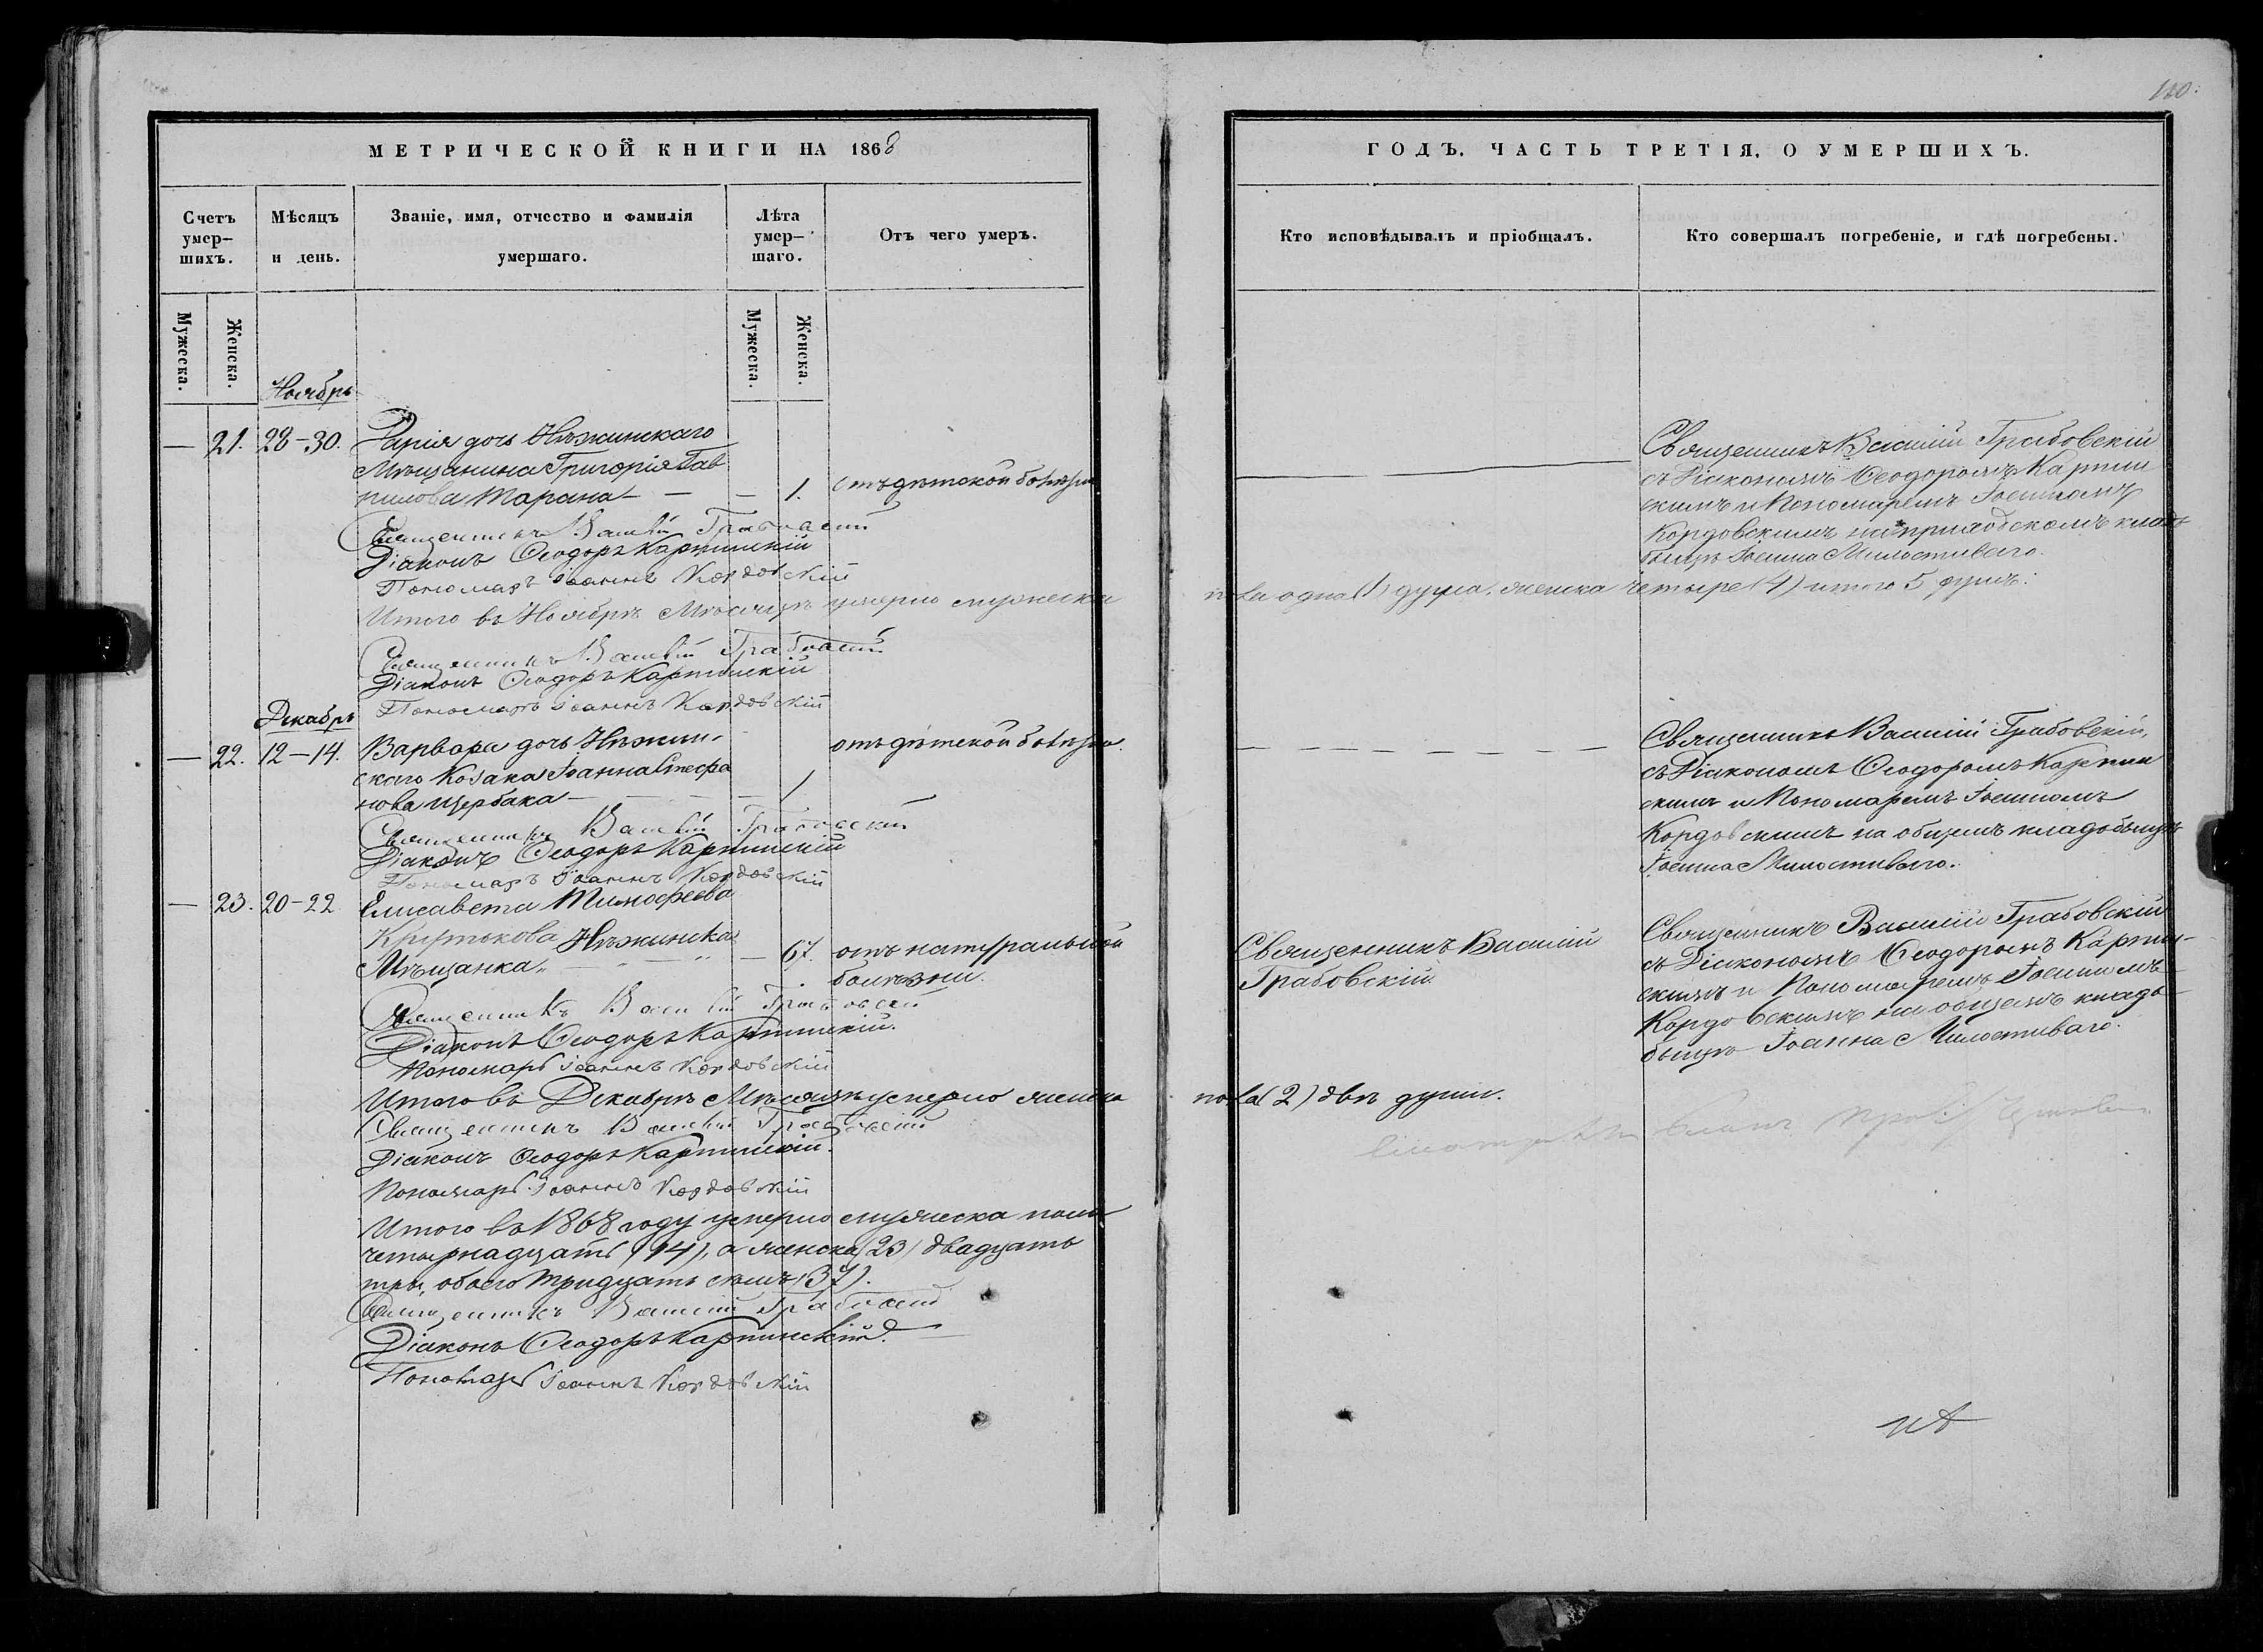 110.
МЕТРИЧЕСКОЙ КНИГИ НА 1868
ГОДЪ, ЧАСТЬ ТРЕТІЯ, О УМЕРШИХЪ.
Счетъ умер-шихъ.
Мѣсяцъ и день.
Званіе, имя, отчество и фамилія умершаго.
Лѣта умер-шаго.
Отъ чего умеръ.
Кто исповѣдывалъ и пріобщалъ.
Кто совершалъ погребеніе, и гдѣ погребены.
Мужеска.
Женска.
Мужеска.
Женска.
Ноябрь
— 21. 28-30.
Дарія дочь Нѣжинскаго
Мѣщанина Григорія Гав
рилова Тарана — — — 1.
отъ дѣтской болѣзни
Священникъ Василій Грабовскій
съ Діакономъ Ѳеодоромъ Карпин
скимъ и Пономаремъ Іоанномъ
Кордовскимъ на приходскомъ клад
бищѣ Іоанна Милостиваго.
Священникъ Василій Грабовскій
Діаконъ Ѳеодоръ Карпинскій
Пономарь Іоаннъ Кордовскій
Итого въ Ноябрѣ Мѣсяцѣ умерло мужеска
пола одна (1) душа, женска четыре (4) итого 5 душъ.
Священникъ Василій Грабовскій
Діаконъ Ѳеодоръ Карпинскій
Пономарь Іоаннъ Кордовскій
Декабрь
— 22. 12-14.
Варвара дочь Нѣжин-
скаго Козака Іоанна Стефа
нова Щербака — — — 1
отъ дѣтской болѣзни.
Священникъ Василій Грабовскій,
съ Діакономъ Ѳеодоромъ Карпин
скимъ и Пономаремъ Іоанномъ
Кордовскимъ на общемъ кладбищѣ
Іоанна Милостиваго.
Священникъ Василій Грабовскій
Діаконъ Ѳеодоръ Карпинскій
Пономарь Іоаннъ Кордовскій
— 23. 20-22
Елисавета Тимофеева
Нѣжинска
Мѣщанка — — — 67.
отъ натуральной
болѣзни.
Священникъ Василій
Грабовскій
Священникъ Василій Грабовскій
съ Діакономъ Ѳеодоромъ Карпин-
скимъ и Пономаремъ Іоанномъ
Кордовскимъ на общемъ кладъ
бищѣ Іоанна Милостиваго.
Священникъ Василій Грабовскій
Діаконъ Ѳеодоръ Карпинскій.
Пономарь Іоаннъ Кордовскій
Итого въ Декабрѣ Мѣсяцѣ умерло женска
пола (2) двѣ души.
Священникъ Василій Грабовскій
Діаконъ Ѳеодоръ Карпинскій.
Пономарь Іоаннъ Кордовскій
Итого въ 1868 году умерло мужеска пола
четырнадцать (14), а женска (23) двадцать
три, обоего тридцать семь (37).
Священникъ Василій Грабовскій
Діаконъ Ѳеодоръ Карпинскій.
Пономарь Іоаннъ Кордовскій